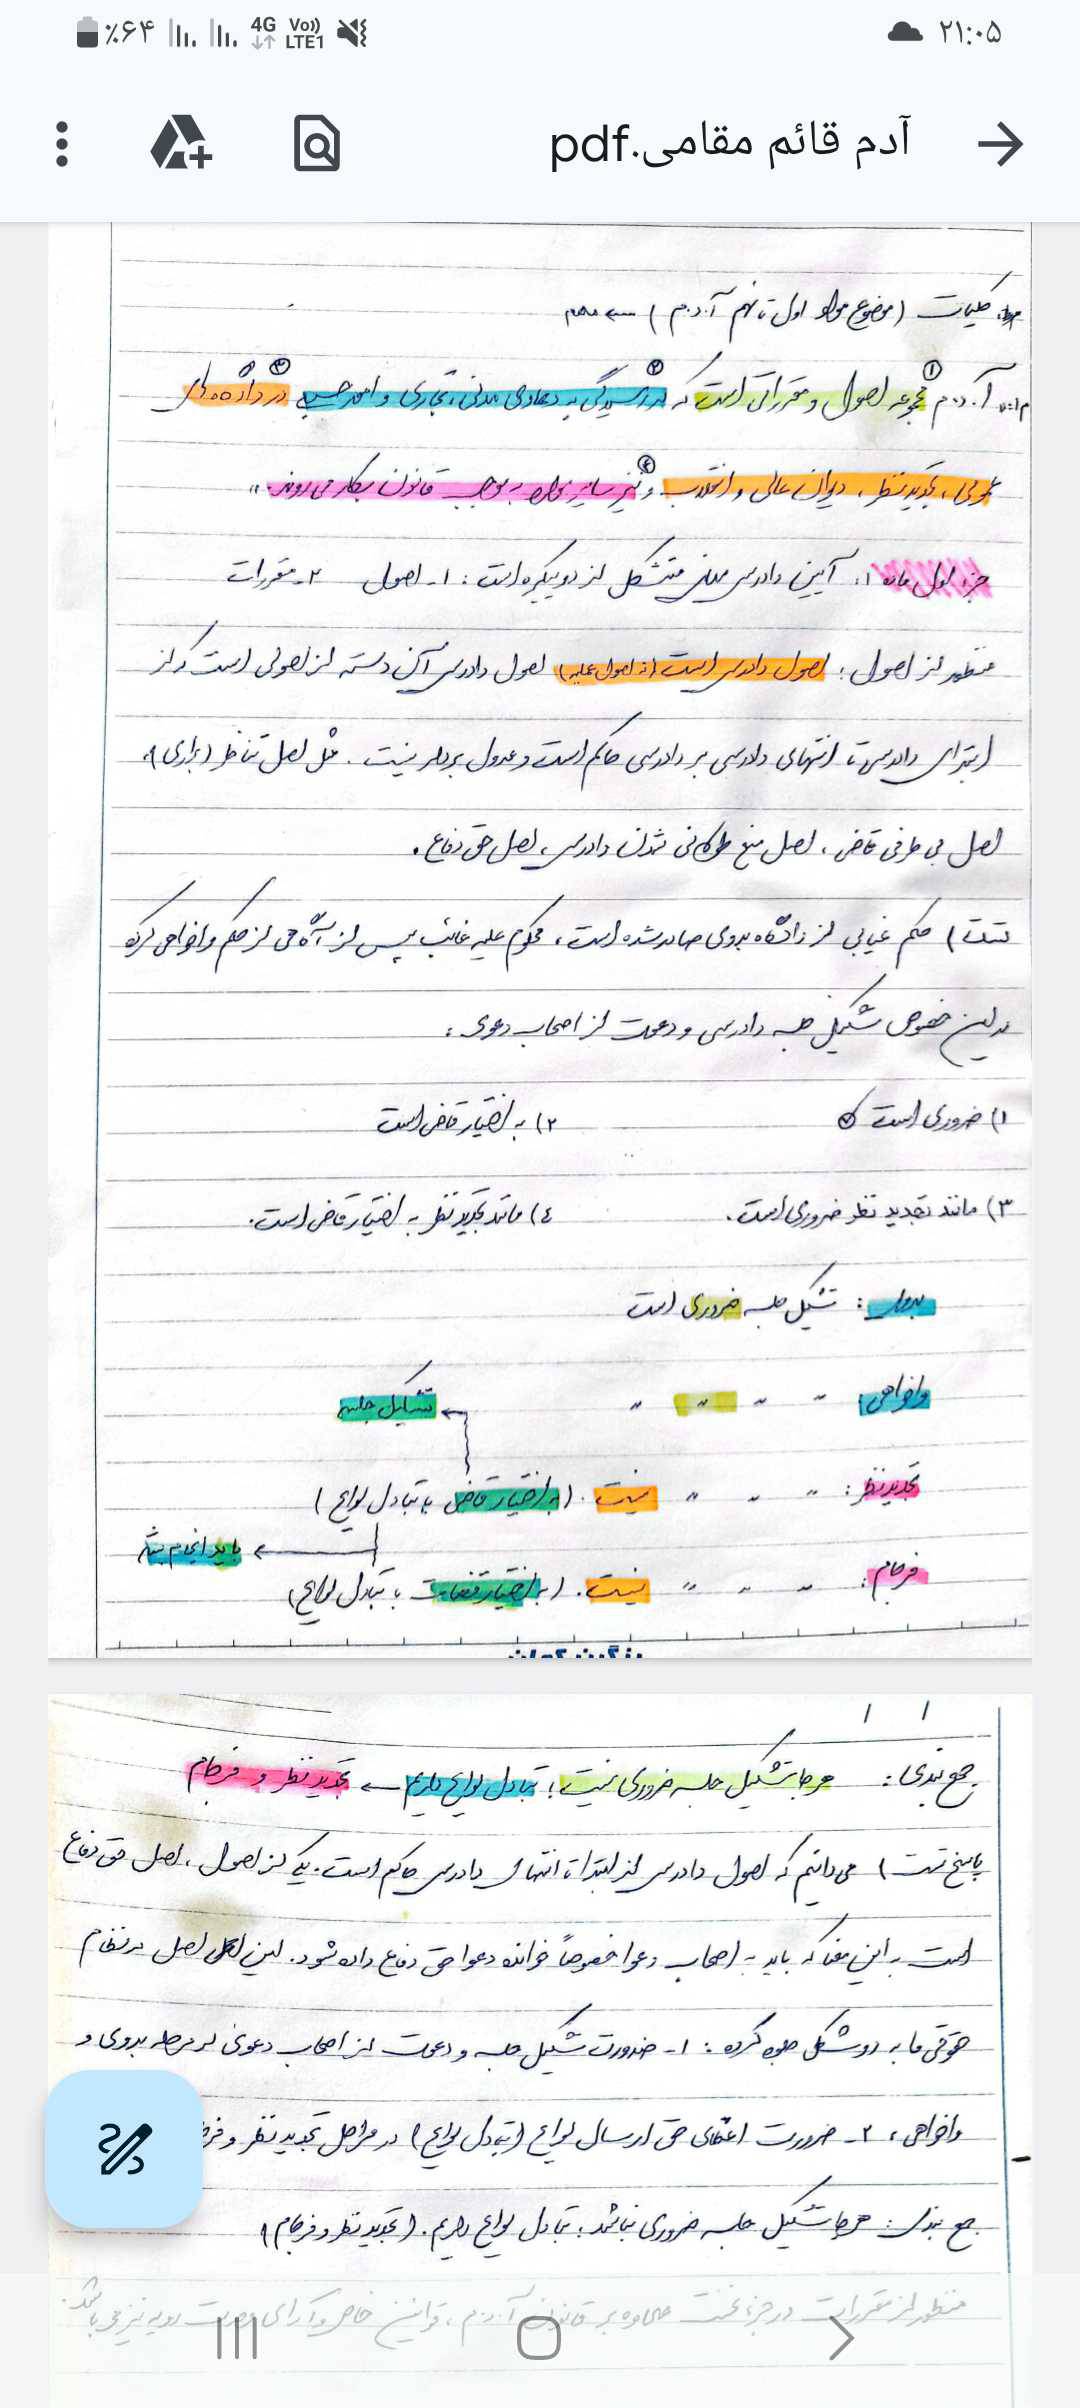 ٪۶۴ 4G Vo)) LTE1 ۲۱:۰۵
آدم قائم مقامی.pdf
کلیات (موضوع مواد اول تا نهم آ.د.م)
م۱: آ.د.م مجموعه اصول و مقرراتی است که در رسیدگی به دعاوی مدنی، تجاری و امور حسبی در دادگاه های
عمومی، تجدیدنظر، دیوان عالی و انقلاب و نیز سایر مراجع به موجب قانون بکار می روند.
جزء اول ماده ۱: آیین دادرسی مدنی متشکل از دو پیکره است: ۱- اصول ۲- مقررات
منظور از اصول: اصول دادرسی است (نه اصول عملیه) اصول دادرسی آن دسته از اصولی است که از
ابتدای دادرسی تا انتهای دادرسی بر دادرسی حاکم است و عدول بردار نیست. مثل اصل تناظر (برابری)،
اصل بی طرفی قاضی، اصل منع طولانی شدن دادرسی، اصل حق دفاع.
تست) حکم غیابی از دادگاه بدوی صادر شده است، محکوم علیه غائب پس از آگاهی از حکم واخواهی کرده
در این خصوص تشکیل جلسه دادرسی و دعوت از اصحاب دعوی:
۱) ضروری است ۲) به اختیار قاضی است
۳) مانند تجدید نظر ضروری است. ٤) مانند تجدیدنظر به اختیار قاضی است.
بدوی: تشکیل جلسه ضروری است
واخواهی: " " " "
تشکیل جلسه
تجدیدنظر: " " " نیست. (به اختیار قاضی با تبادل لوایح)
باید انجام بشه
فرجام: " " " نیست. (به اختیار قضات با تبادل لوایح)
جمع بندی: هرجا تشکیل جلسه ضروری نیست؛ تبادل لوایح داریم ← تجدیدنظر و فرجام
پاسخ تست) می دانیم که اصول دادرسی از ابتدا تا انتهای دادرسی حاکم است. یکی از اصول، اصل حق دفاع
است به این معنا که باید به اصحاب دعوا خصوصاً خوانده دعوا حق دفاع داده شود. این اصل در نظام
حقوقی ما به دو شکل جلوه کرده: ۱- ضرورت تشکیل جلسه و دعوت از اصحاب دعوی در مرحله بدوی و
واخواهی، ۲- ضرورت اعطای حق ارسال لوایح (تبادل لوایح) در مراحل تجدیدنظر و فرجام
جمع بندی: هرجا تشکیل جلسه ضروری نباشد؛ تبادل لوایح داریم. (تجدیدنظر و فرجام)
منظور از مقررات در جزء نخست علاوه بر قانون آ.د.م، قوانین خاص و آرای وحدت رویه نیز می باشد.